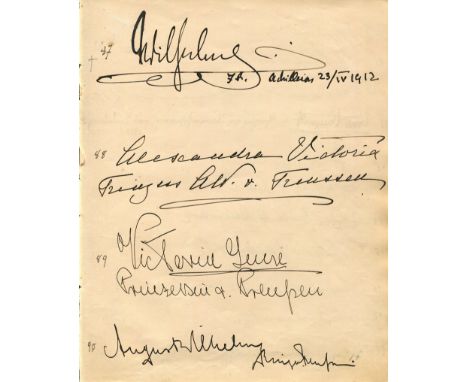 47 Wilhelm
I.R. Achilleion 23/IV 1912
48 Alexandra Victoria
Prinzess A.W. v. Preussen
49 Victoria Luise
Prinzessin v. Preußen
50 August Wilhelm